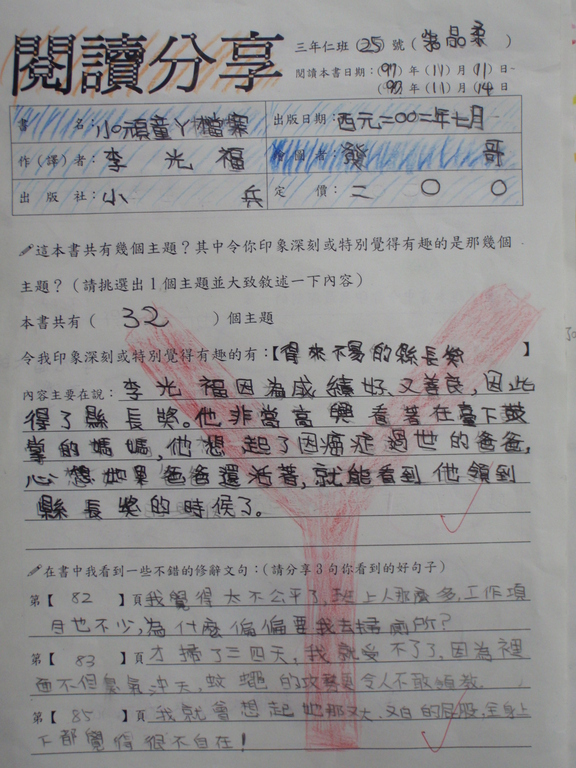 閱讀分享
三年仁班(25)號(晶柔)
閱讀本書日期:(97)年(11)月(11)日~
(97)年(11)月(14)日
書名:小頑童ㄚ檔案 出版日期:西元二00二年七月
作(譯)者:李光福 繪圖者:發哥
出版社:小兵 定價:二00
這本書共有幾個主題?其中令你印象深刻或特別覺得有趣的是那幾個
主題?(請挑選出1個主題並大致敘述一下內容)
本書共有(32)個主題
令我印象深刻或特別覺得有趣的有:【得來不易的縣長獎】
內容主要在說:李光福因為成績好、又善良,因此
得了縣長獎。他非常高興看著在臺下鼓
掌的媽媽,他想起了因癌症過世的爸爸,
心想如果爸爸還活著,就能看到他領到
縣長獎的時候了。
在書中我看到一些不錯的修辭文句:(請分享3句你看到的好句子)
第【82】頁我覺得太不公平了,班上人那麼多,工作項
目也不少,為什麼偏偏要我去掃廁所?
第【83】頁才掃了三四天,我就受不了了,因為裡
面不但臭氣沖天,蚊蠅的攻勢更令人不敢領教.
第【85】頁我就會想起她那又大、又白的屁股,全身上
下都覺得很不自在!